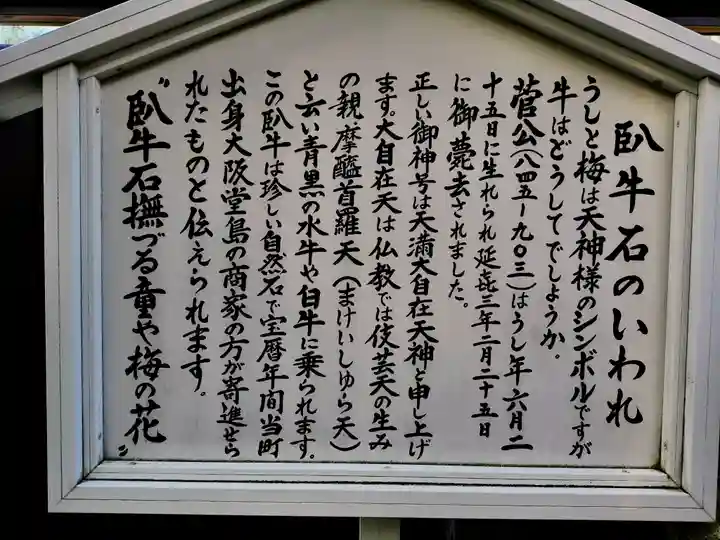 臥牛石のいわれ
うしと梅は天神様のシンボルですが
牛はどうしてでしようか。
菅公(八四五〜九〇三)はうし年六月二
十五日に生れられ延喜三年二月二十五日
に御薨去されました。
正しい御神号は天満大自在天神と申し上げ
ます。大自在天は仏教では伎芸天の生み
の親、摩醯首羅天(まけいしゆら天)
と云い青黒の水牛や白牛に乗られます。
この臥牛は珍しい自然石で宝暦年間当町
出身大阪堂島の商家の方が寄進せら
れたものと伝えられます。
〝臥牛石撫づる童や梅の花〟